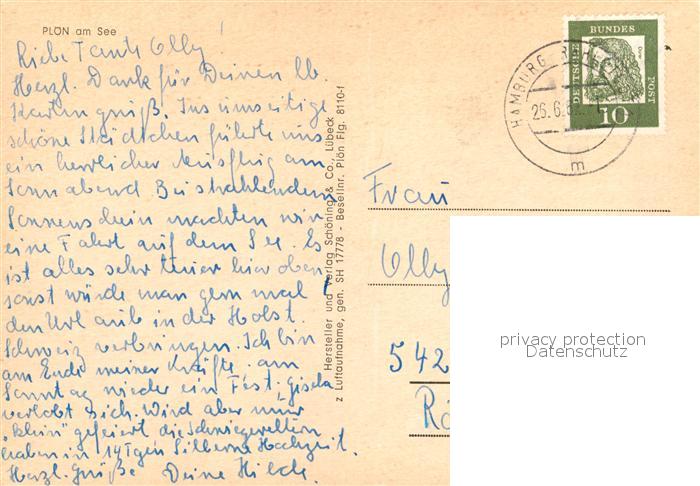 PLÖN am See
Liebe Tante Olly!
Herzl. Dank für Deinen lb.
Kartengruß. Ins umseitige
schöne Städtchen führte uns
ein herrlicher Ausflug am
Sonnabend. Bei strahlendem
Sonnenschein machten wir
eine Fahrt auf dem See. Es
ist alles sehr teuer hier oben,
sonst würde man gern mal
den Urlaub in der Holst.
Schweiz verbringen. Ich bin
am Ende meiner Kräfte. am
Sonntag wieder ein Fest: Gisela
verlobt sich. Wird aber nur
"klein" gefeiert die Schwiegereltern
haben in 14 Tgen Silberne Hochzeit.
Herzl. Grüße Deine Hilde.
Hersteller und Verlag Schöning & Co., Lübeck
z Luftaufnahme, gen. SH 17778 - Bestellnr. Plön Flg. 8110-f
DEUTSCHE BUNDES POST
Dürer
10
HAMBURG
26.6.6
m
Frau
Olly
542
privacy protection
Datenschutz